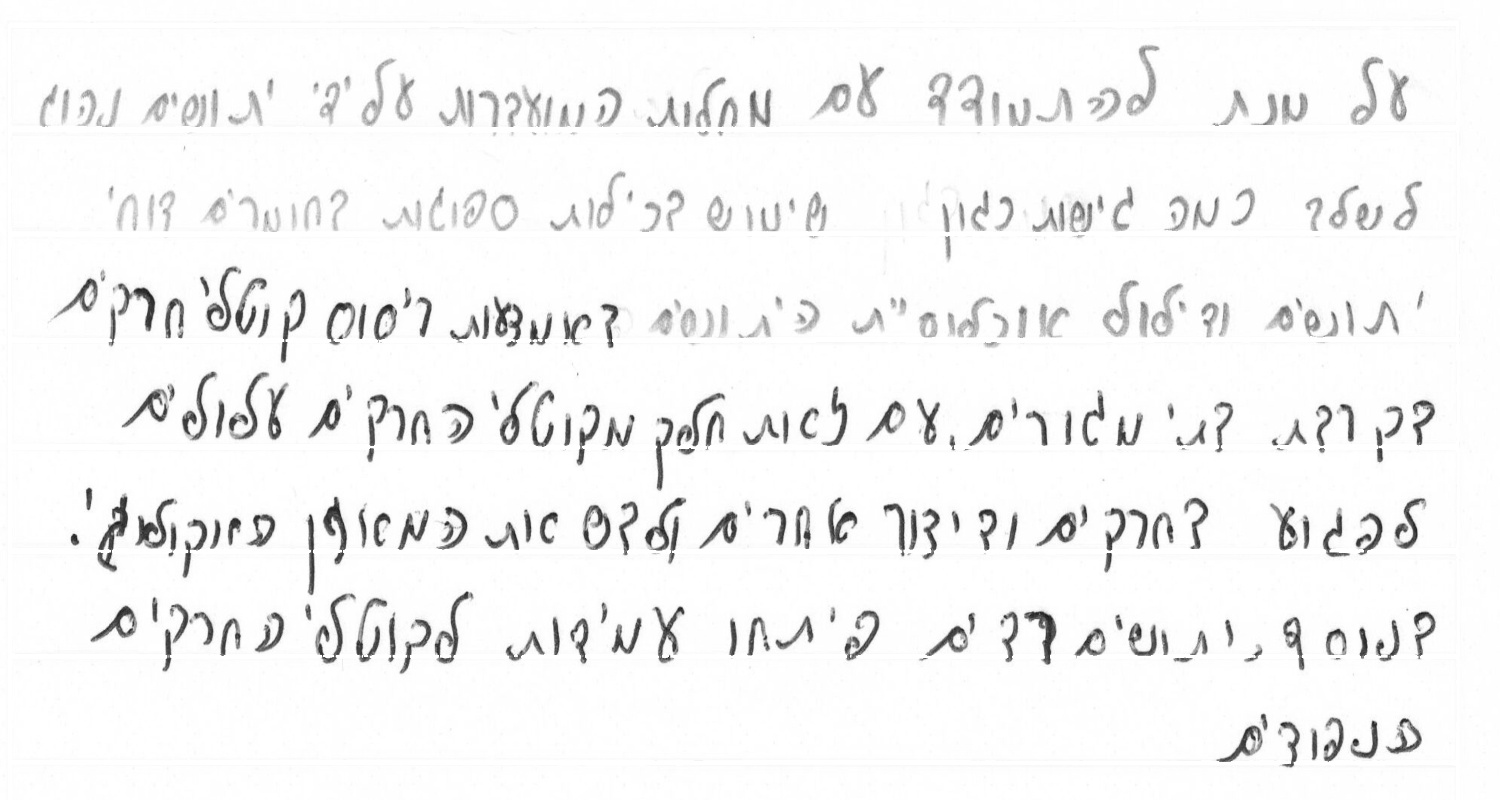 על מנת להתמודד עם מחלות המועברות על ידי יתושים נהוג
לשלב כמה גישות כגון שימוש בכילות ספוגות בחומרים דוחי
יתושים ודילול אוכלוסיית היתושים באמצעות ריסוס קוטלי חרקים
בקרבת בתי מגורים. עם זאת חלק מקוטלי החרקים עלולים
לפגוע בחרקים ודידוך אחרים ולבש את המאוזן האקולוגי.
בנוסף, יתושים רבים פיתחו עמידות לקוטלי החרקים
הנפוצים